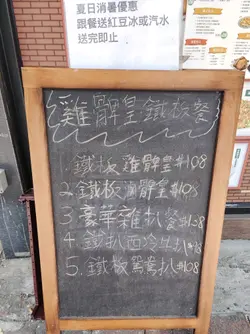 夏日消暑優惠
跟餐送紅豆冰或汽水
送完即止
雞髀皇鐵板餐
1. 鐵板雞髀皇 #108
2. 鐵板滴髀皇 #108
3 豪華雜扒餐 #158
4. 鐵扒西冷牛扒
5. 鐵板鴛鴦扒 #108